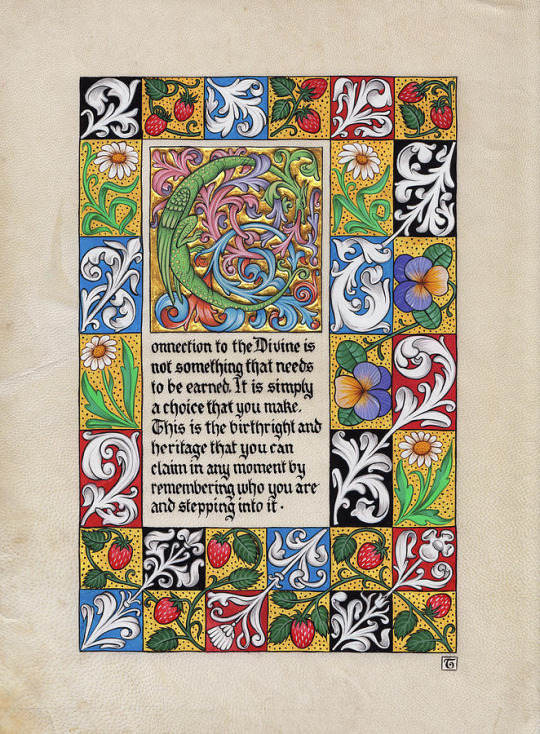 Connection to the Divine is
not something that needs
to be earned. It is simply
a choice that you make.
This is the birthright and
heritage that you can
claim in any moment by
remembering who you are
and stepping into it.
T